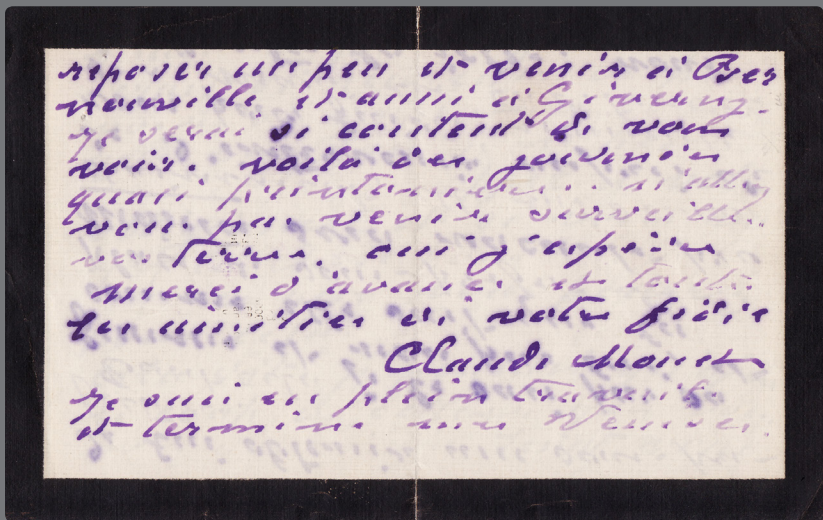 reposer un peu et venir à Ber
nouville et aussi à Giverny.
je serai si content de vous
voir. voilà des journées
quasi printanières. n'allez
vous pas venir surveiller
vos terres. oui j'espère
merci d'avance et toutes
les amitiés de votre fidèle
Claude Monet
je suis en plein travail
et termine mes Venises.